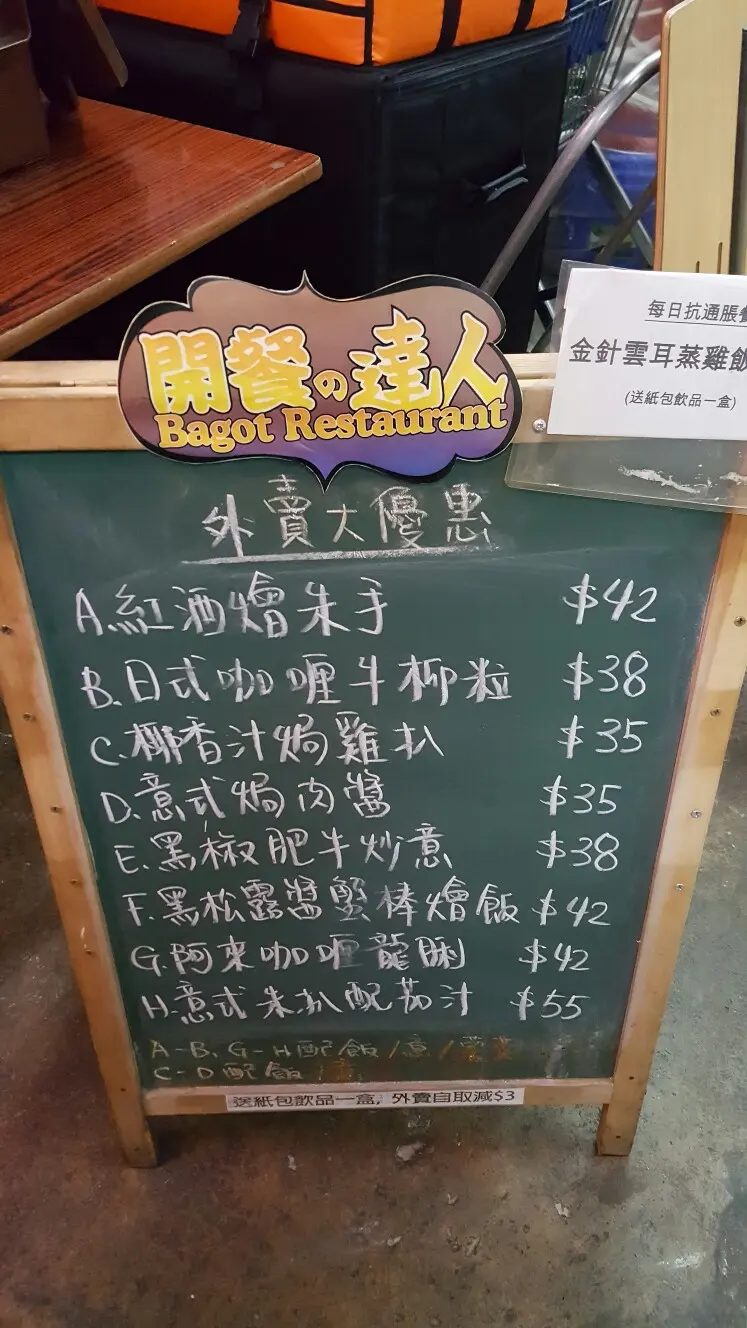 開餐の達人
Bagot Restaurant
每日抗通脹
金針雲耳蒸雞飯
(送紙包飲品一盒)
外賣大優惠
A.紅酒燴朱手 $42
B.日式咖喱牛柳粒 $38
C.椰香汁焗雞扒 $35
D.意式焗肉醬 $35
E.黑椒肥牛炒意 $38
F.黑松露醬蟹棒燴飯 $42
G.阿來咖喱龍脷 $42
H.意式朱扒配茄汁 $55
A-B,G-H配飯/意/
C-D配飯/意
送紙包飲品一盒, 外賣自取減$3